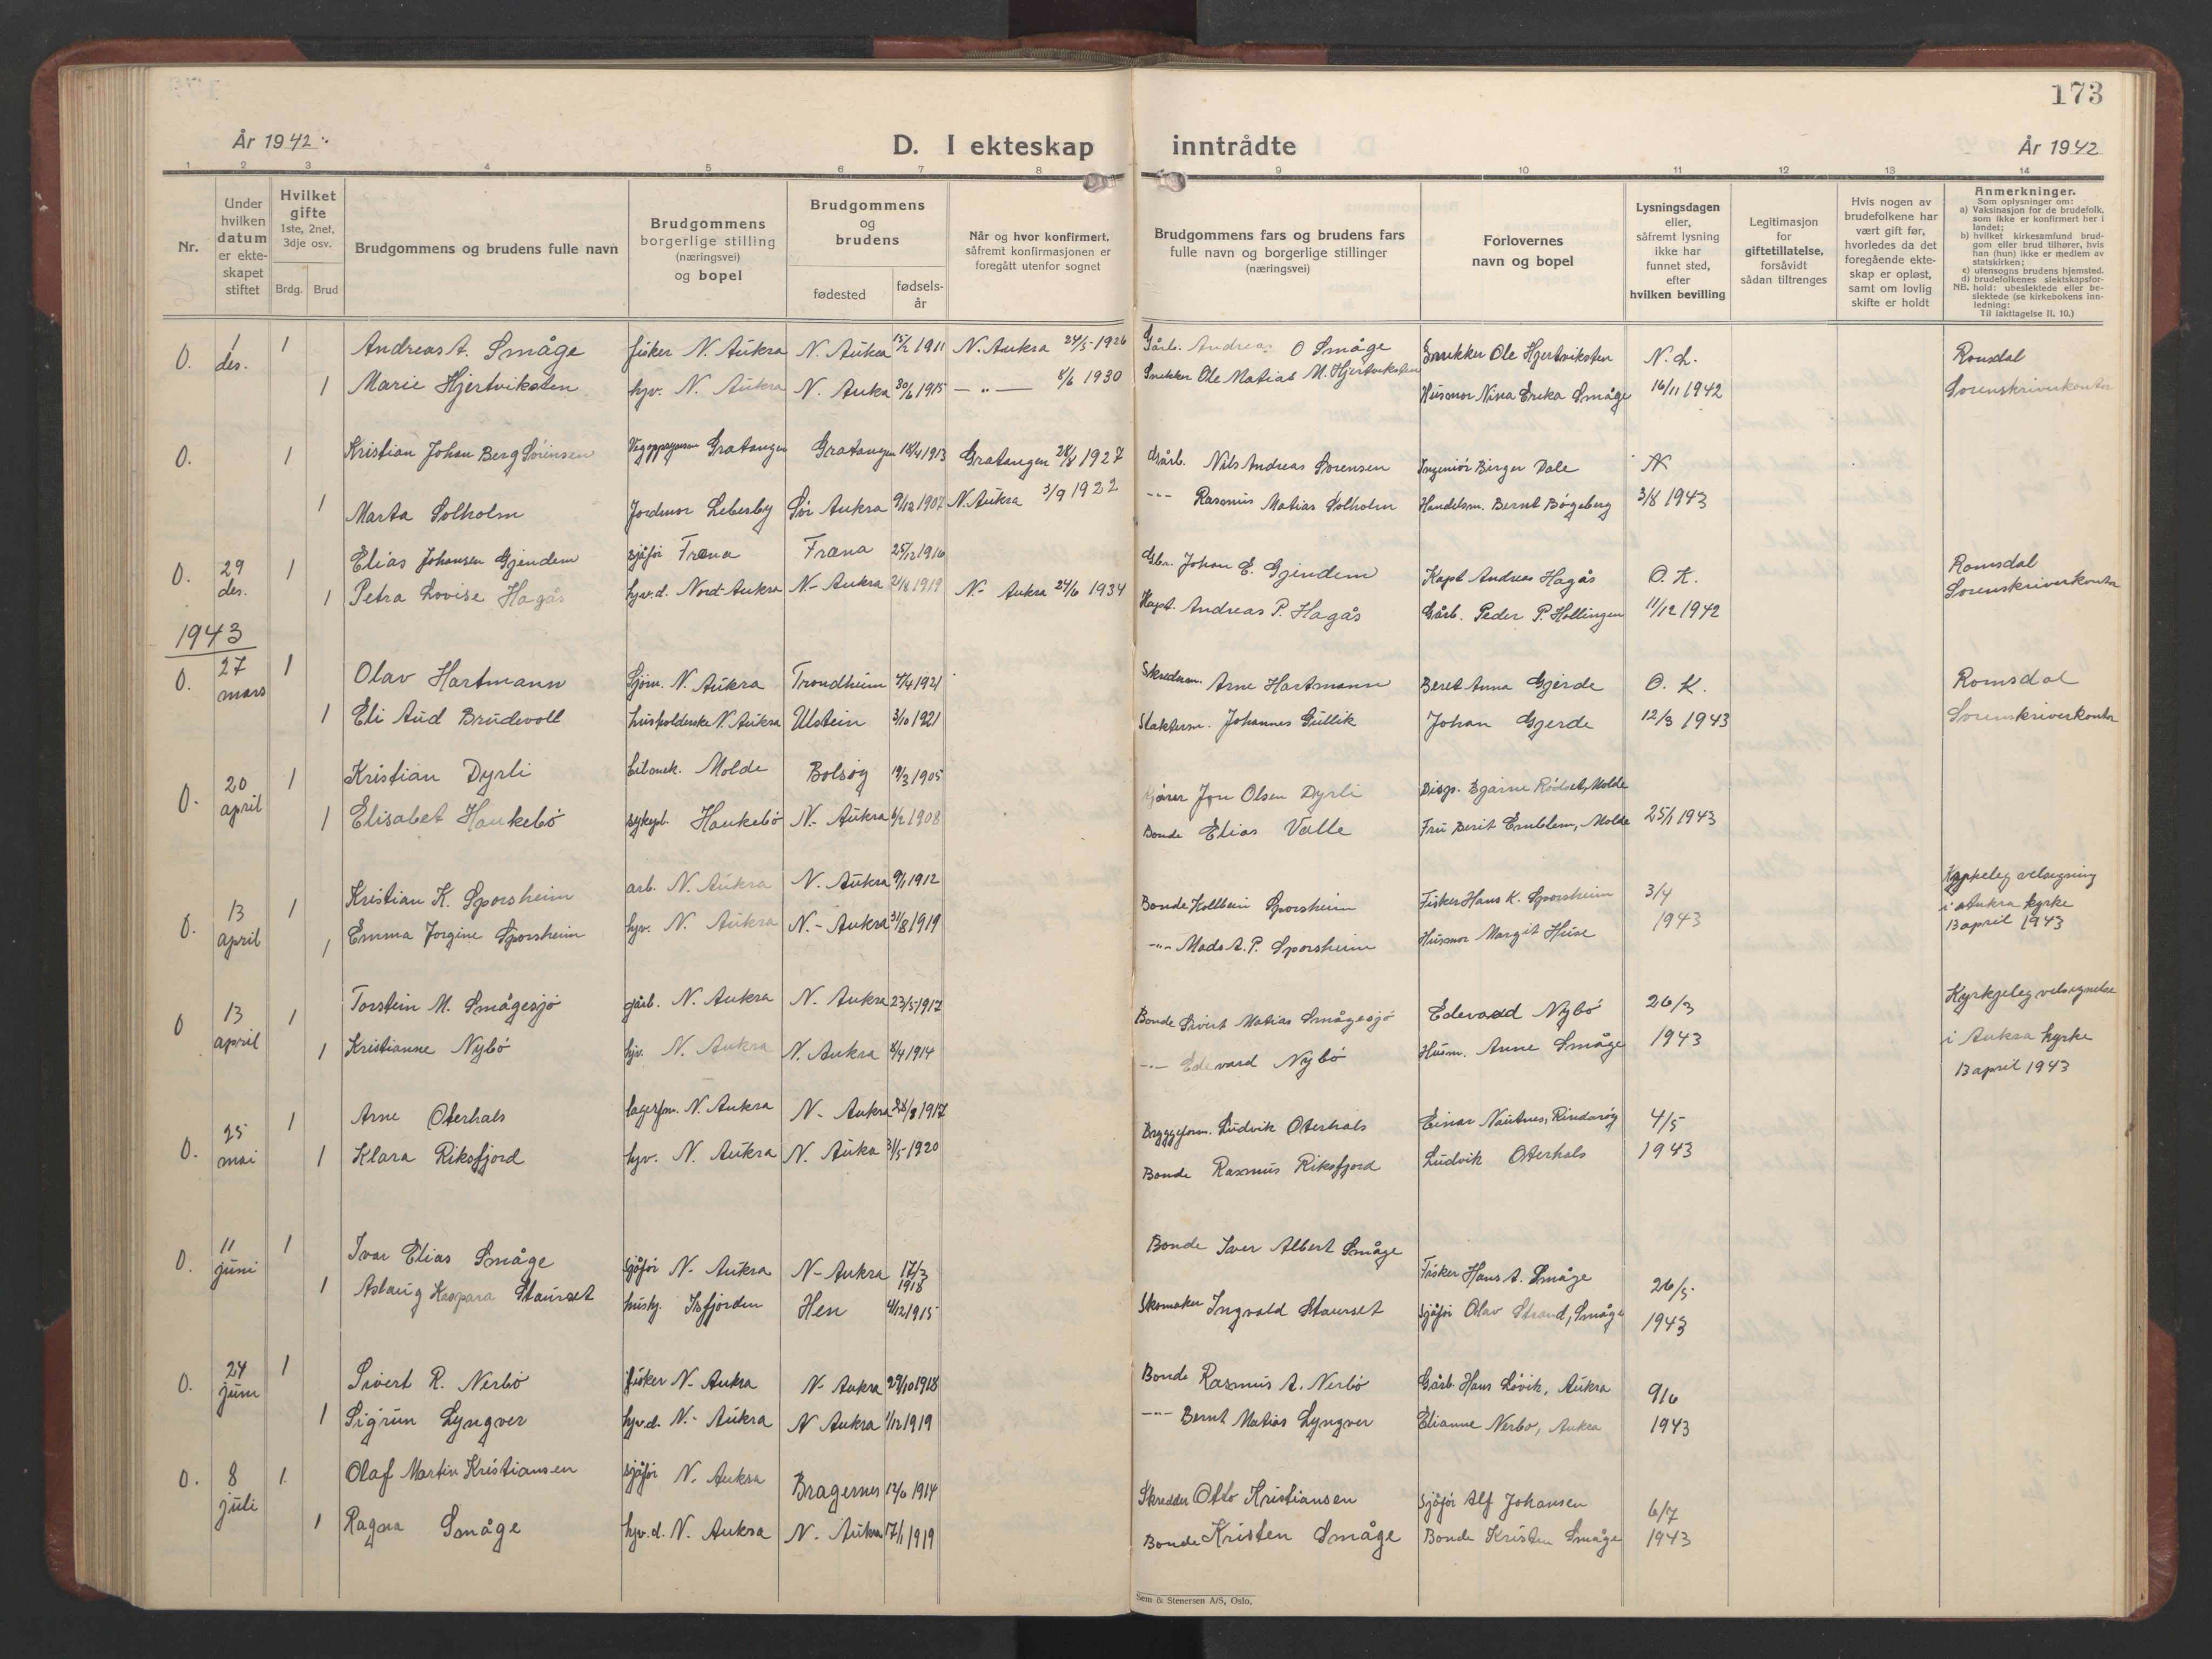 173
År 1942
D. I ekteskap inntrådte
År 1942
1 2 3 4 5 6 7 8 9 10 11 12 13 14
Nr.
Under hvilken datum er ekteskapet stiftet
Hvilket gifte 1ste, 2net, 3dje osv.
Brdg. Brud
Brudgommens og brudens fulle navn
Brudgommens borgerlige stilling (næringsvei) og bopel
Brudgommens og brudens
fødested
fødselsår
Når og hvor konfirmert, såfremt konfirmasjonen er foregått utenfor sognet
Brudgommens fars og brudens fars fulle navn og borgerlige stillinger (næringsvei)
Forlovernes navn og bopel
Lysningsdagen eller, såfremt lysning ikke har funnet sted, efter hvilken bevilling
Legitimasjon for giftetillatelse, forsåvidt sådan tiltrenges
Hvis nogen av brudefolkene har vært gift før, hvorledes da det foregående ekteskap er opløst, samt om lovlig skifte er holdt
Anmerkninger.
Som oplysninger om:
a) Vaksinasjon for de brudefolk, som ikke er konfirmert her i landet;
b) hvilket kirkesamfund brudgom eller brud tilhører, hvis han (hun) ikke er medlem av statskirken;
c) utensogns brudens hjemsted.
d) brudefolkenes slektskapsforhold: ubeslektede eller beslektede (se kirkebokens innledning:
NB.
Til iakttagelse II. 10.)
0. 1 des. 1 Andreas A. Småge fisker N. Aukra N. Aukra 15/2 1911 N. Aukra 24/5-1926 Gårb. Andreas O Småge Snekker Ole Hjertviksten N. L. Romsdal
1 Marie Hjertviksten hjv. N. Aukra N. Aukra 30/6 1915 —"— 8/6 1930 Snekker Ole Matias M. Hjertviksten Husmor Nina Erika Småge 16/11 1942 Sorenskriverkontor
0. 1 Kristian Johan Berg Sörensen Gratangen Gratangen 18/4 1913 Gratangen 28/8 1927 Gårb. Nils Andreas Sorensen Ingeniör Birger Dale N
1 Marta Solholm Jordmor Lebesby Sör Aukra 9/12 1907 N. Aukra 3/9 1922 -"- Rasmus Matias Solholm Handelsm. Bernt Bögeberg 3/8 1943
0. 29 des. 1 Elias Johansen Gjendem sjåför Fræna Fræna 25/12 1916 Gbr. Johan E. Gjendem Kapt Andreas Hagås O. K. Romsdal
1 Petra Lovise Hagås hjv.d. Nord-Aukra N.- Aukra 21/8 1919 N- Aukra 24/6 1934 Kapt. Andreas P. Hagås Gårb. Peder P. Hollingen 11/12 1942 Sorenskriverkontor
1943
0. 27 mars 1 Olav Hartmann Sjöm. N. Aukra Trondheim 4/4 1921 Arne Hartmann Beret Anna Gjerde O. K. Romsdal
1 Eli Aud Brudevoll husholderske N. Aukra Ulstein 3/10 1921 Slakterm. Johannes Gullik Johan Gjerde 12/3 1943 Sorenskriverkontor
0. 20 april 1 Kristian Dyrli bilmek. Molde Bolsöy 19/3 1905 Jon Olsen Dyrli Disp. Bjarne Rödset, Molde
1 Elisabet Haukebö sykepl. Haukebö N.- Aukra 6/2 1908 Bonde Elias Valle Fru Berit Emblem, Molde 25/1 1943
0. 13 april 1 Kristian K. Sporsheim arb. N. Aukra N. Aukra 9/1 1912 Bonde Kollbein Sporsheim Fisker Hans K. Sporsheim 3/4 Kyrkjeleg velsigning
1 Emma Jorgine Sporsheim hjv. N. Aukra N.- Aukra 31/8 1919 -"- Mads A. P. Sporsheim Husmor Margit Huse 1943 i Aukra kyrke
13 april 1943
0 13 april 1 Torstein M. Smågesjö gårb. N. Aukra N- Aukra 23/5-1917 Bonde Sivert Matias Smågesjö Edevard Nybö 26/3 Kyrkjeleg velsignelse
1 Kristianne Nybö hjv. N. Aukra N. Aukra 8/4 1914 -"- Edevard Nybö Husm. Anne Småge 1943 i Aukra kyrke
13 april 1943
0. 25 mai 1 Arne Oterhals lagerfm. N. Aukra N- Aukra 28/8 1917 Bryggeform. Ludvik Oterhals Einar Nautnes, Rindaröy 4/5
1 Klara Riksfjord hjv. N. Aukra N. Aukra 31/5-1920 Bonde Rasmus Riksfjord Ludvik Oterhals 1943
0. 11 juni 1 Ivar Elias Småge sjåför N- Aukra N- Aukra 17/3 1918 Bonde Iver Albert Småge Fisker Hans A. Småge 26/5
1 Aslaug Kaspara Staurset hushj. Isfjorden Hen 4/12 1915 Skomaker Ingvald Staurset sjåför Olav Strand, Småge 1943
0. 24 juni 1 Sivert R. Nerbö fisker N- Aukra N- Aukra 29/10 1918 Bonde Rasmus A. Nerbö Gårb. Hans Lövik, Aukra 9/6
1 Sigrun Lyngver hjv.d. N.- Aukra N Aukra 1/12 1919 -"- Bernt Matias Lyngver Elianne Nerbö, Aukra 1943
0. 8 juli 1 Olaf Martin Kristiansen sjåför N. Aukra Bragernes 12/6 1914 Skredder Otto Kristiansen sjåför Alf Johansen 6/7
1 Ragna Småge hjv.d. N. Aukra N. Aukra 17/1 1919 Bonde Kristen Småge Bonde Kristen Småge 1943
Sem & Stenersen A/S, Oslo.